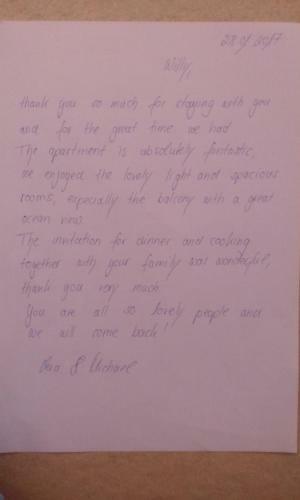 Willy,
thank you so much for staying with you
and for the great time we had
The apartment is absolutely fantastic,
we enjoyed the lovely light and spacious
rooms, especially the balcony with a great
ocean view.
The invitation for dinner and cooking
together with your family was wonderful,
thank you very much.
You are all so lovely people and
we will come back!
& Michael